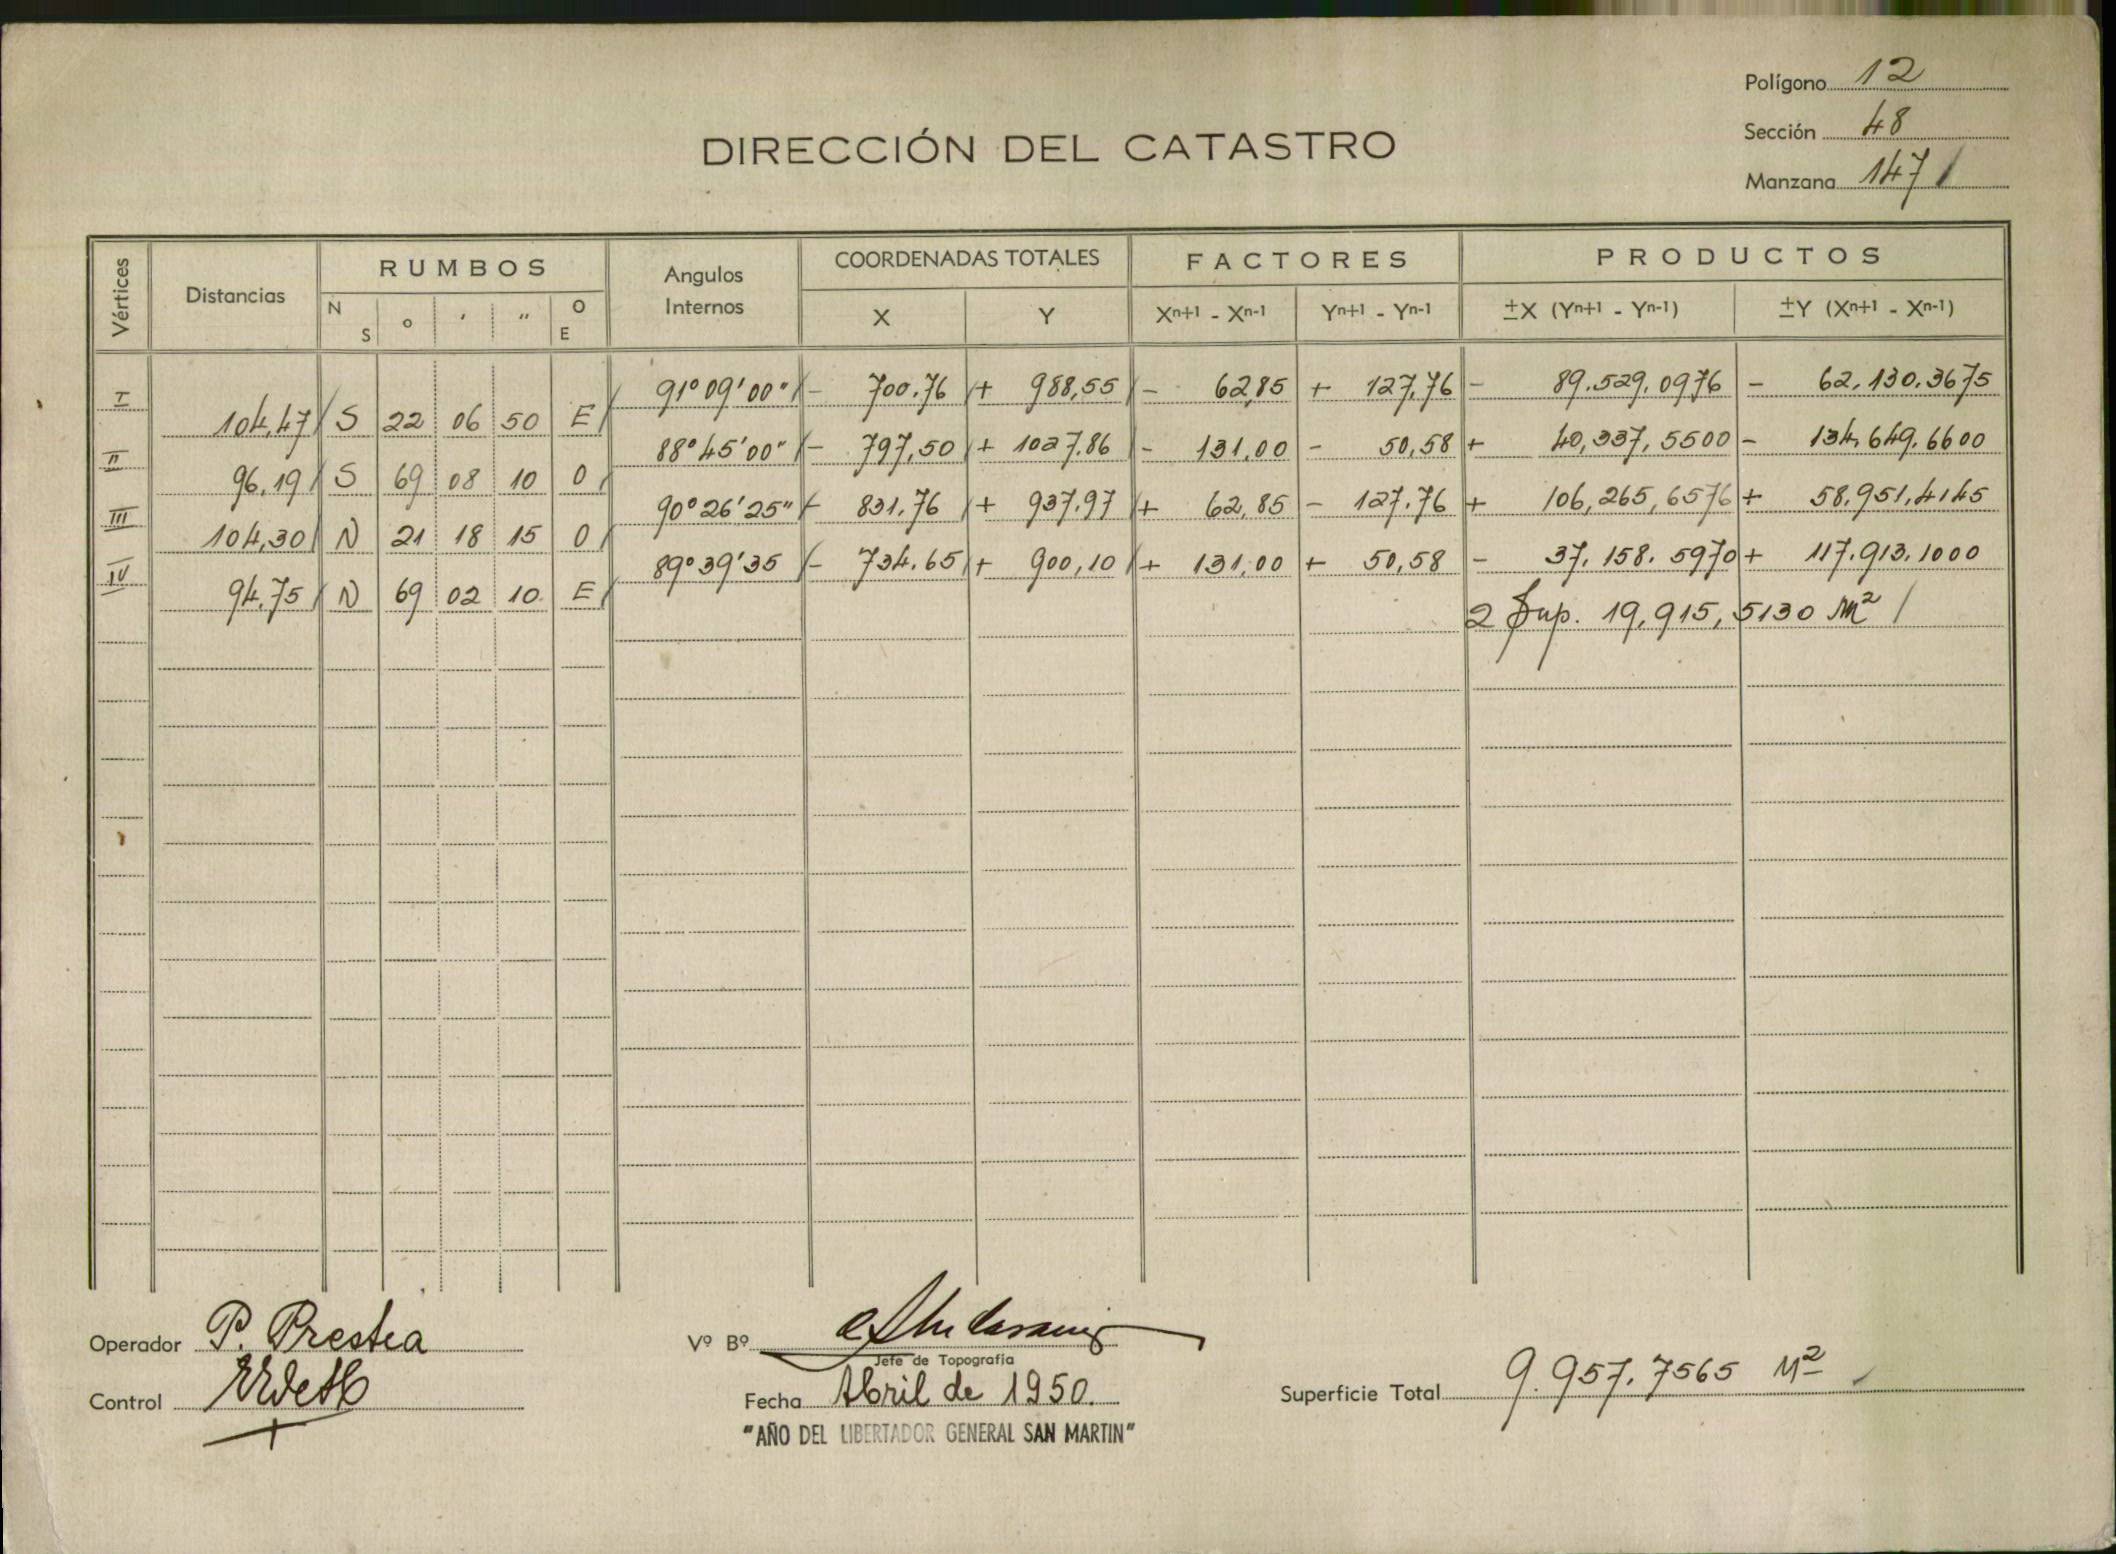 Polígono 12
Sección 48
Manzana 147 /
DIRECCIÓN DEL CATASTRO
Vértices Distancias RUMBOS Angulos Internos COORDENADAS TOTALES FACTORES PRODUCTOS
N S o ' " O E X Y Xn+1 - Xn-1 Yn+1 - Yn-1 ±X (Yn+1 - Yn-1) ±Y (Xn+1 - Xn-1)
I 91° 09' 00" - 700.76 + 988,55 - 62,85 + 127,76 - 89.529.0976 - 62.130.3675
104,47 S 22 06 50 E
II 88° 45' 00" - 797,50 + 1027.86 - 131,00 - 50,58 + 40,337,5500 - 134.649.6600
96,19 S 69 08 10 O
III 90° 26' 25" - 831.76 + 937.97 + 62,85 - 127.76 + 106,265,6576 + 58.951,4145
104,30 N 21 18 15 O
IV 89° 39' 35 - 734.65 + 900,10 + 131,00 + 50,58 - 37.158.5970 + 117.913.1000
94,75 N 69 02 10 E
2 Sup. 19,915,5130 M² /
Operador P. Prestia
Control
Vº Bº
Jefe de Topografía
Fecha Abril de 1950.
"AÑO DEL LIBERTADOR GENERAL SAN MARTIN"
Superficie Total 9.957.7565 M²